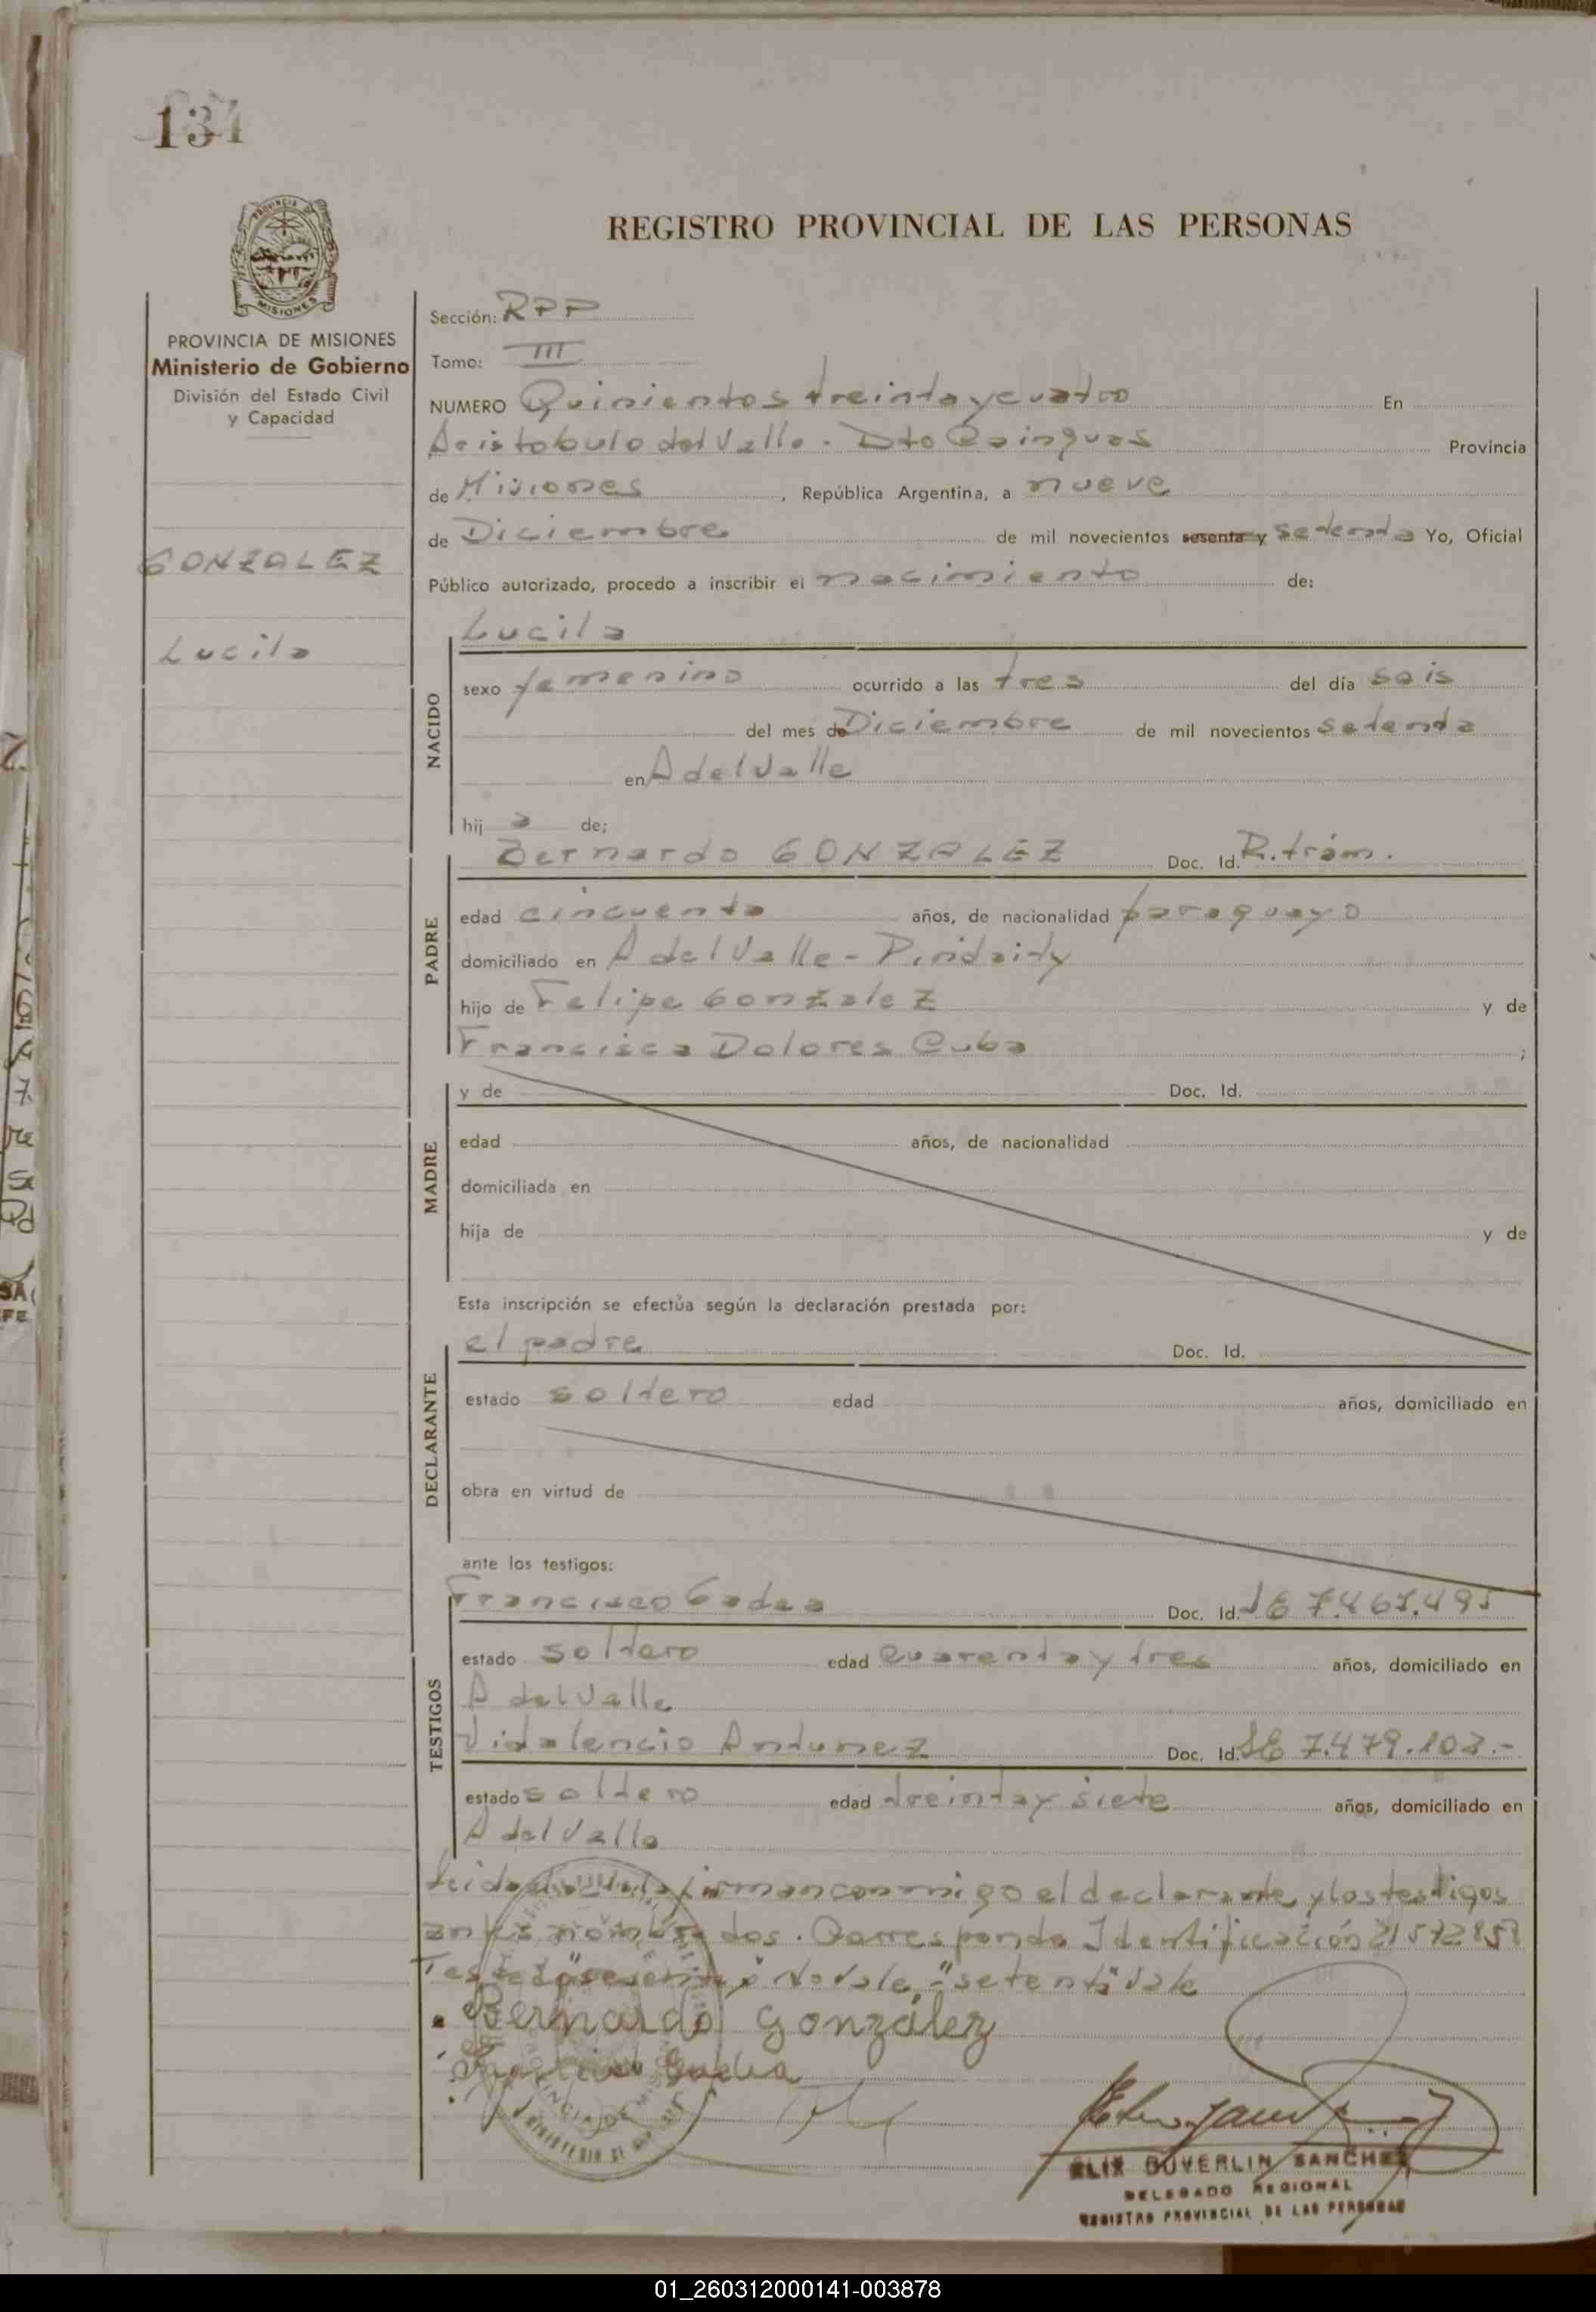 134
REGISTRO PROVINCIAL DE LAS PERSONAS
PROVINCIA DE MISIONES
Ministerio de Gobierno
División del Estado Civil
y Capacidad
GONZALEZ
Lucila
Sección: RPP
Tomo: III
NUMERO Quinientos treinta y cuatro En
Aristobulo del Valle - Dto Cainguas Provincia
de Misiones, República Argentina, a nueve
de Diciembre de mil novecientos sesenta y setenta Yo, Oficial
Público autorizado, procedo a inscribir el nacimiento de:
NACIDO
Lucila
sexo femenino ocurrido a las tres del día seis
del mes de Diciembre de mil novecientos setenta
en A del Valle
hij a de;
PADRE
Bernardo GONZALEZ Doc. Id. R. trám.
edad cincuenta años, de nacionalidad paraguayo
domiciliado en A del Valle - Pindaity
hijo de Felipe Gonzalez y de
Francisca Dolores Cuba ;
MADRE
y de Doc. Id.
edad años, de nacionalidad
domiciliada en
hija de y de
Esta inscripción se efectúa según la declaración prestada por:
DECLARANTE
el padre Doc. Id.
estado soltero edad años, domiciliado en
obra en virtud de
ante los testigos:
TESTIGOS
Francisco Gadea Doc. Id. LE 7.467.495
estado soltero edad cuarenta y tres años, domiciliado en
A del Valle
Vidalencio Antunez Doc. Id. LE 7.479.103.-
estado soltero edad treinta y siete años, domiciliado en
A del Valle
Leida el acta la firman conmigo el declarante y los testigos
antes nombrados. Corresponde Identificación 21572857
Testado "sesenta y" No vale, "setenta" vale
Bernardo González
Gadea
ELIX DUVERLIN SANCHEZ
DELEGADO REGIONAL
REGISTRO PROVINCIAL DE LAS PERSONAS
01_260312000141-003878